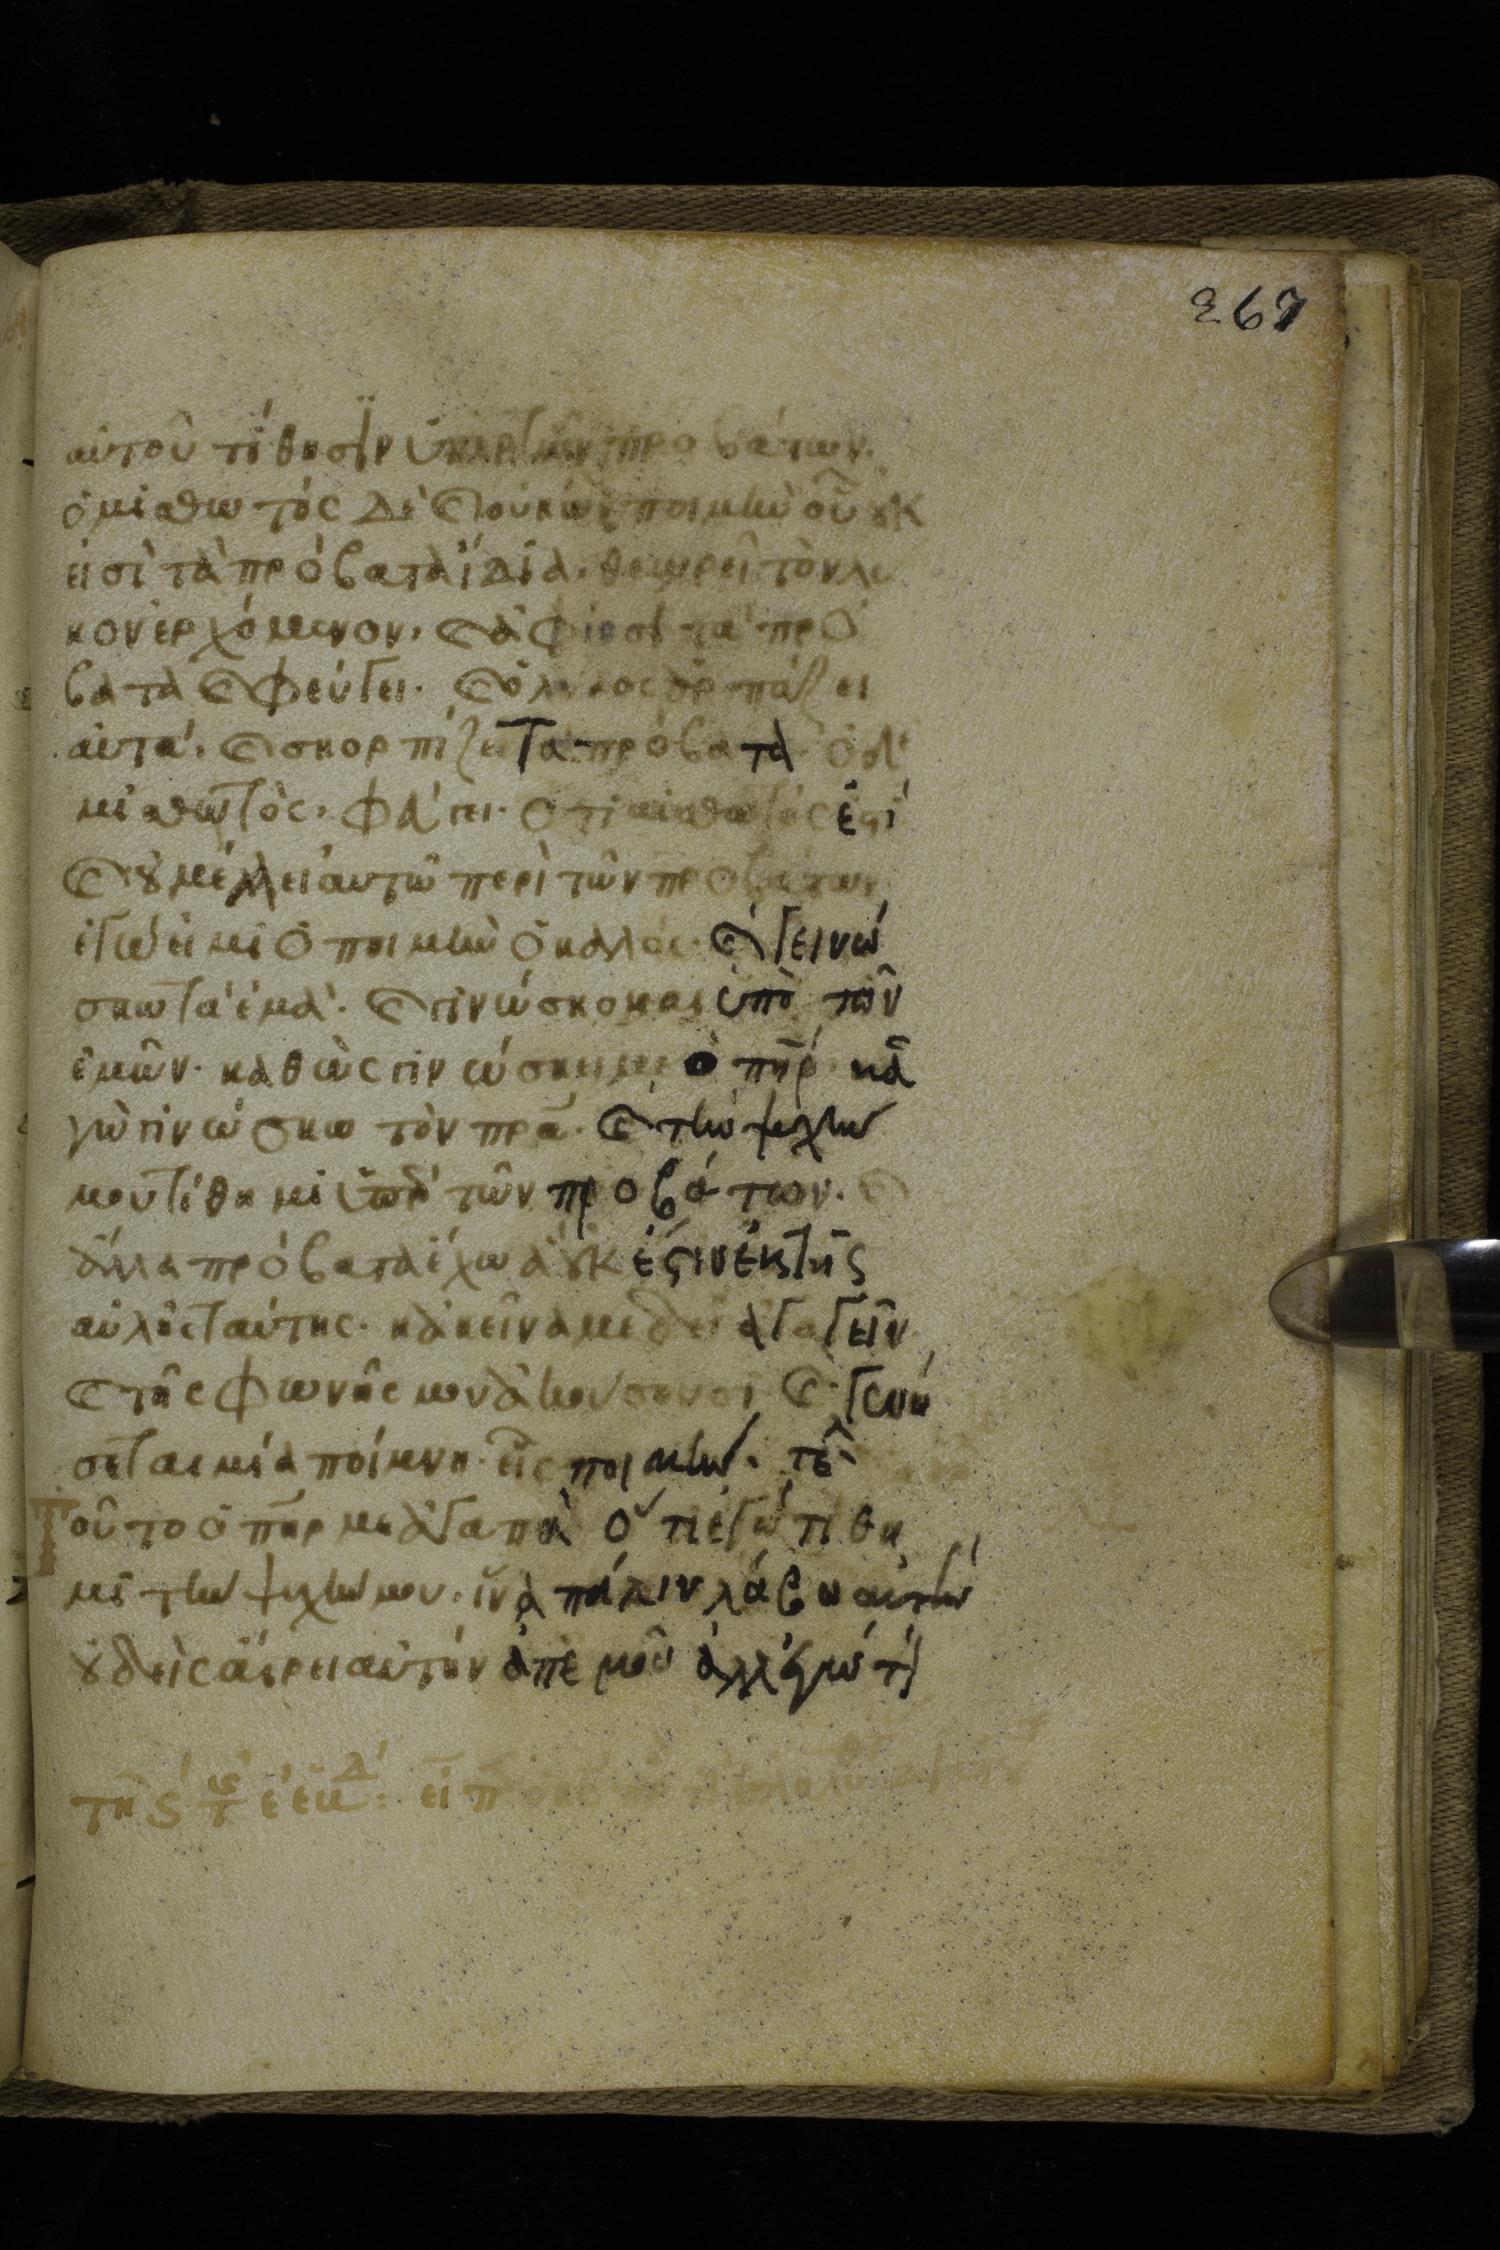 267
αὐτοῦ τίθησϊν ὑπὲρ τῶν προβάτων.
ὁ μισθωτὸς δὲ καὶ οὐκ ὢν ποιμὴν οὗ οὐκ
εἰσὶ τὰ πρόβατα ἴδια. θεωρεῖ τὸν λύ
κον ἐρχόμενον. καὶ ἀφίησι τὰ πρό
βατα καὶ φεύγει. καὶ ὁ λύκος ἁρπάζει
αὐτά. καὶ σκορπίζει τὰ πρόβατα. ὁ δὲ
μισθωτὸς. φεύγει. ὅτι μισθωτός ἐστί
καὶ οὐ μέλλει αὐτῶ περὶ τῶν προβάτων.
ἐγώ εἰμι ὁ ποιμὴν ὁ καλός. καὶ γεινώ
σκω τὰ ἐμὰ. καὶ γινώσκομαι ὑπὸ τῶν
ἐμῶν. καθὼς γινώσκει με ὁ πηρ. κἀ
γὼ γινώσκω τὸν πρα. καὶ τὴν ψυχὴν
μου τίθημι ὑπὲρ τῶν προβάτων. καὶ
ἄλλα πρόβατα ἔχω ἃ οὐκ ἔστιν ἐκ τῆς
αὐλῆς ταύτης. κἀκεῖνά με δεῖ ἀγαγεῖν
καὶ τῆς φωνῆς μου ἀκούσουσι καὶ γενή
σεται μία ποίμνη. εἷς ποιμήν. τέλ
Τοῦτο ὁ πηρ με ἀγαπᾶ ὅτι ἐγὼ τίθη
μι τὴν ψυχήν μου. ἵνα πάλιν λάβω αὐτήν
οὐδεὶς αἴρει αὐτὴν ἀπ' ἐμοῦ ἀλλ' ἐγὼ τί
τῆ ς΄ εἶπ